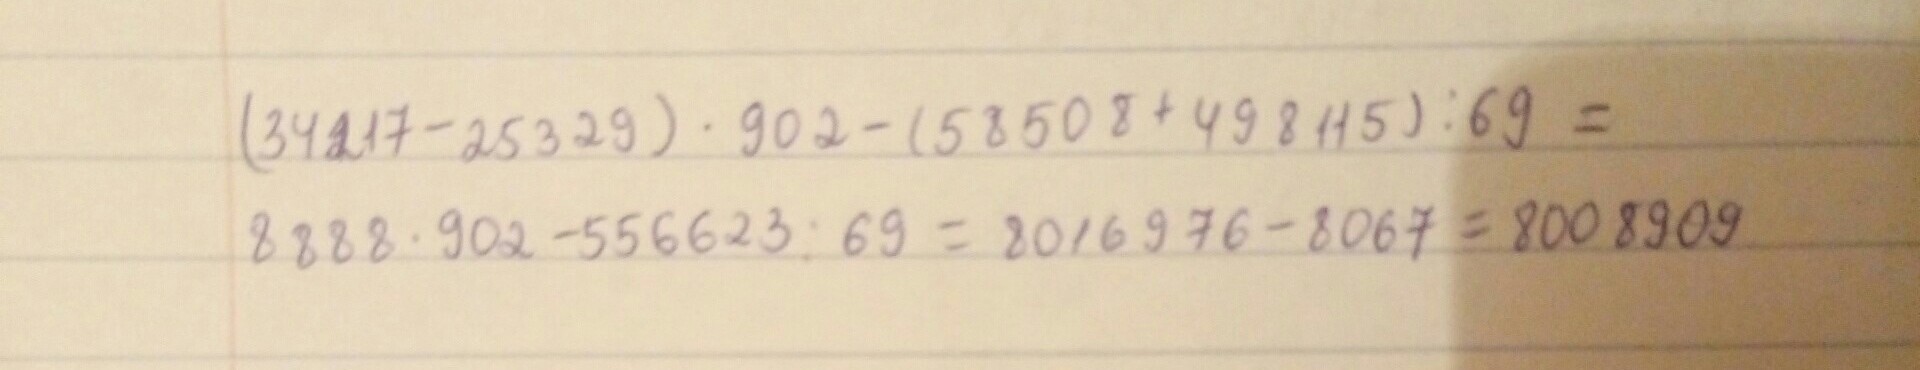 (34217-25329)·902-(58508+498115):69=
8888·902-556623:69=8016976-8067=8008909